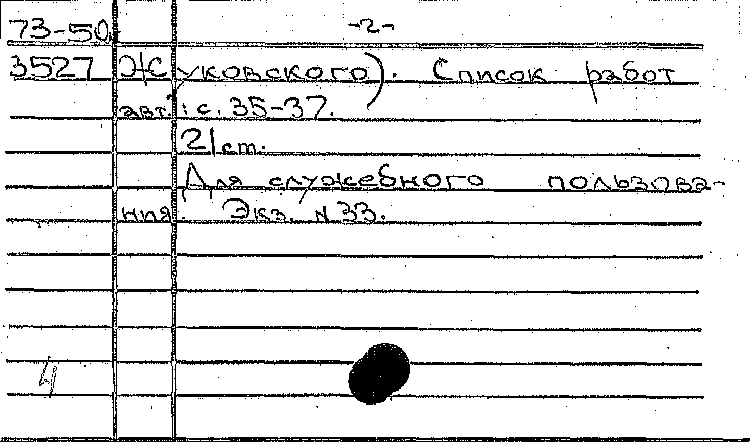 73-50 -2-
3527 Жуковского). Список работ
авт.: с. 35-37.
21 cm.
Для служебного пользова-
ния. Экз. N 33.
4